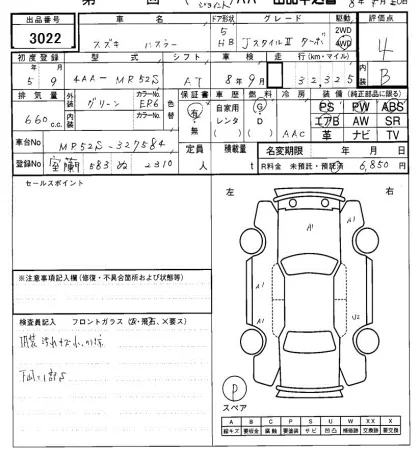 出品番号 車名 ドア形状 グレード 駆動 評価点
3022 スズキ ハスラー 5 HB JスタイルⅡ ターボ 2WD 4WD 4
初度登録 型式 シフト 車検 走行(km・マイル) 内装
5年9月 4AA-MR52S AT 8年9月 32,325 B
排気量 外装 カラーNo. 色替 保証書 車歴 燃料 冷房 装備(純正部品に限る)
660c.c. グリーン EP6 有・無 自家用 レンタ G D AAC PS PW ABS
内装 カラーNo. エアB AW SR
革 ナビ TV
車台No MR52S-327584 定員 人 積載量 t 名変期限 年 月
登録No 室蘭 583 ぬ 2310 R料金 未預託・預託 6,850円
セールスポイント
左 右
A1
A1
A1 U2
※注意事項記入欄(修復・不具合箇所および状態等)
検査員記入 フロントガラス(・飛石、×要ス)
内装 汚れキズ小
P
スペア
A B C P S U W XX X
線キズ 要板金 腐触 要塗装 サビ 凹凸 補修跡 交換済 要交換